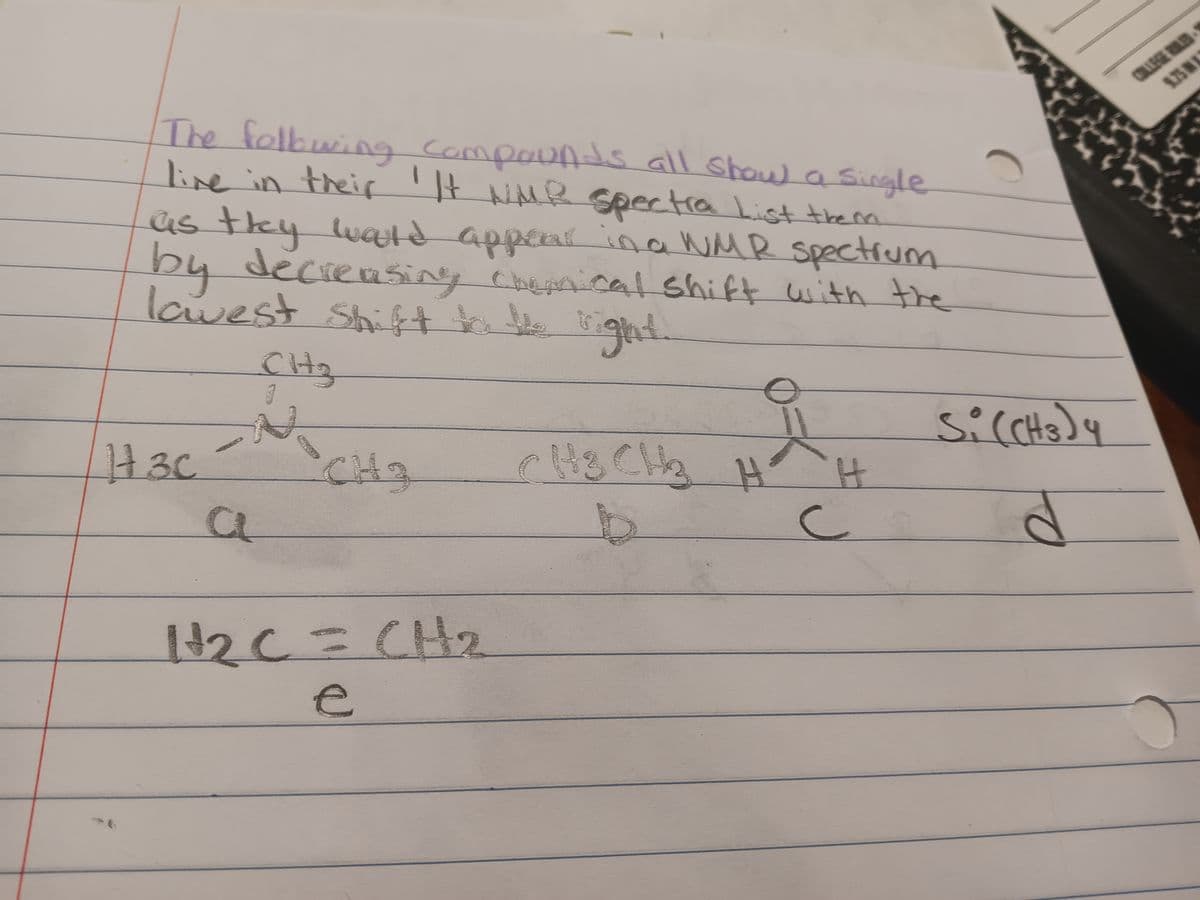 COLLEGE RULED
9.75 IN
The following compounds all show a single
line in their ¹H NMR spectra List them
as they would appear in a NMR spectrum
by decreasing chemical shift with the
lowest shift to the right.
CH3
N
H3C CH3 CH3CH3
O
H H
Si(CH3)4
a b c d
H2C = CH2
e